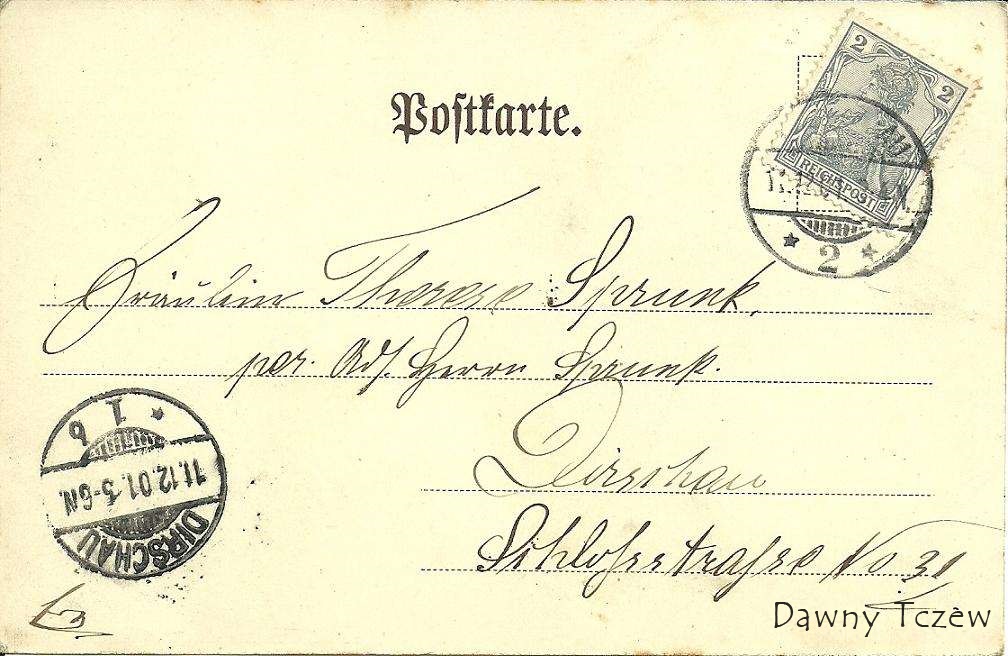 Postkarte.
2 2
REICHSPOST
2
Fräulein Therese Sprunk,
per. Adr. Herrn Sprunk.
Dirschau
Schloßstrasse No 31
DIRSCHAU
11.12.01. 5-6N.
* 1 b
Dawny Tczew